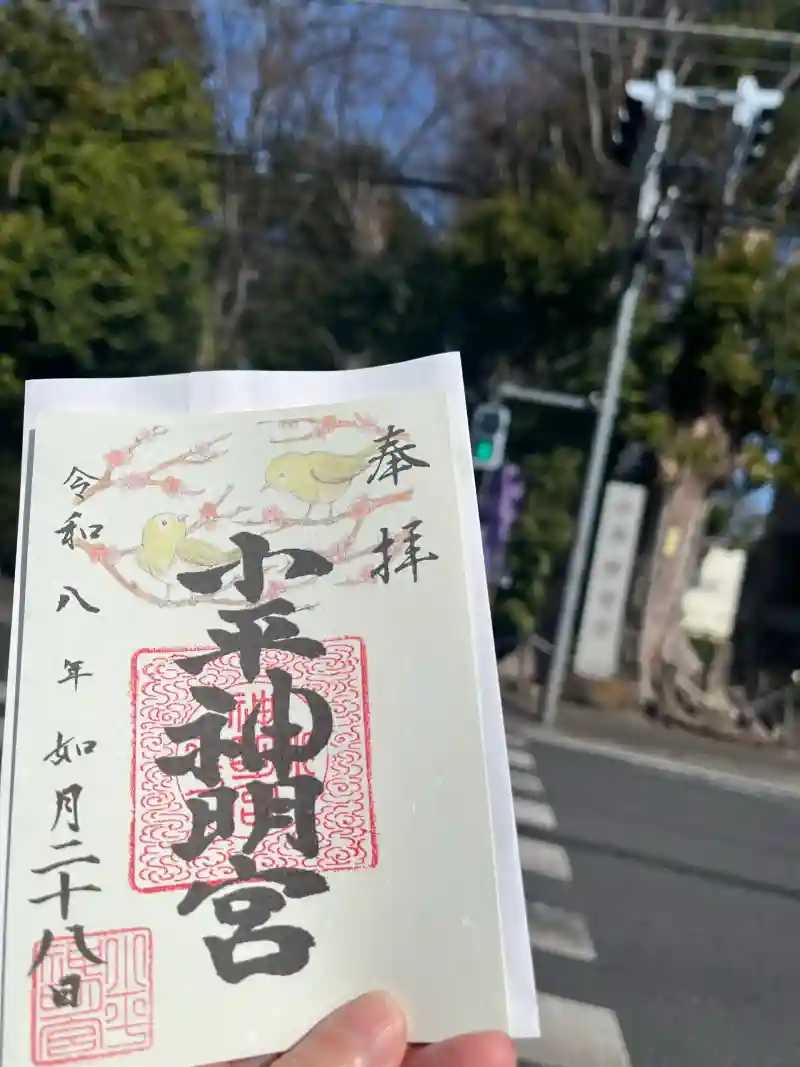 奉拝
小平神明宮
令和八年如月二十八日